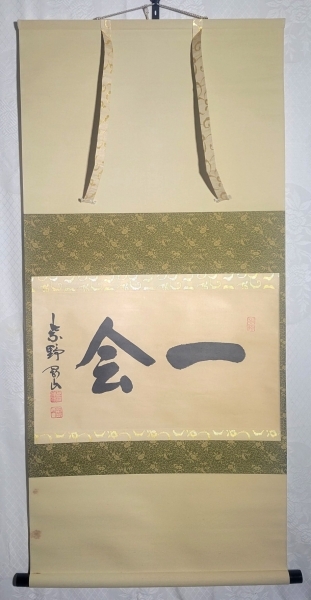 一会
紫野